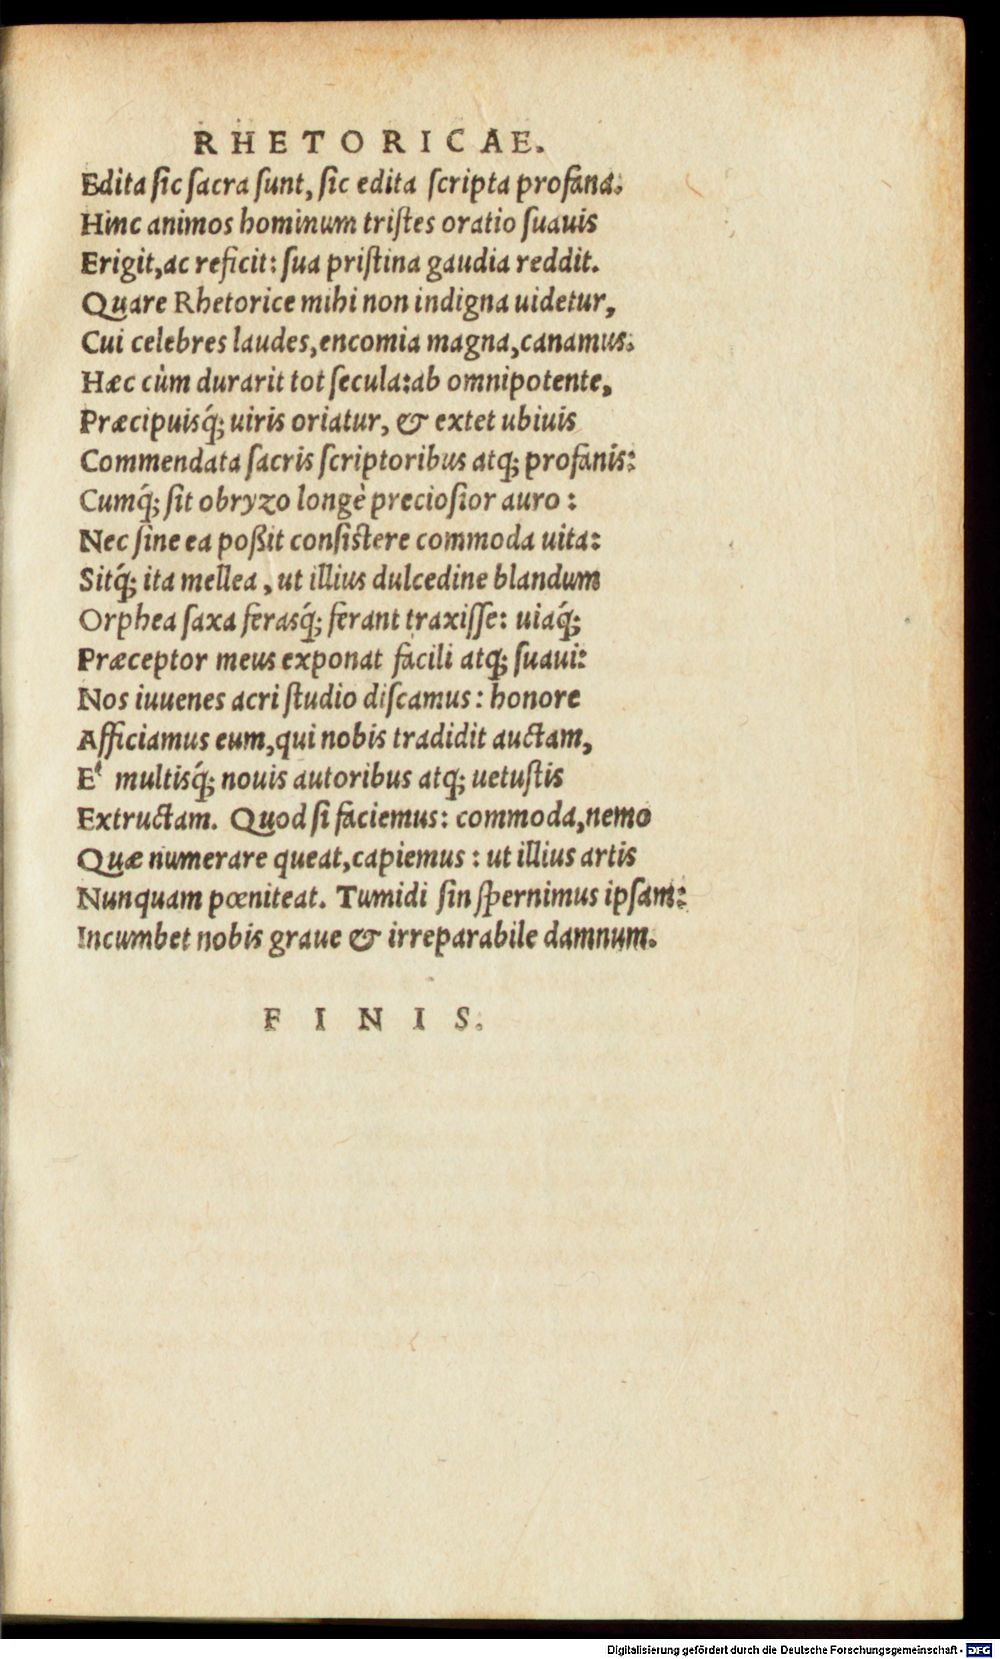 RHETORICAE.
Edita ſic ſacra ſunt, ſic edita ſcripta profana.
Hinc animos hominum triſtes oratio ſuauis
Erigit, ac reficit: ſua priſtina gaudia reddit.
Quare Rhetorice mihi non indigna uidetur,
Cui celebres laudes, encomia magna, canamus.
Hæc cùm durarit tot ſecula: ab omnipotente,
Præcipuisq́; uiris oriatur, & extet ubiuis
Commendata ſacris ſcriptoribus atq; profanis:
Cumq́; ſit obryzo longè precioſior auro:
Nec ſine ea poßit conſiſtere commoda uita:
Sitq́; ita mellea, ut illius dulcedine blandum
Orphea ſaxa ferasq́; ferant traxiſſe: uiaq́;
Præceptor meus exponat facili atq; ſuaui:
Nos iuuenes acri ſtudio diſcamus: honore
Afficiamus eum, qui nobis tradidit auctam,
Eᵗ multisq́; nouis autoribus atq; uetuſtis
Extructam. Quod ſi faciemus: commoda, nemo
Quæ numerare queat, capiemus: ut illius artis
Nunquam pœniteat. Tumidi ſin ſpernimus ipſam:
Incumbet nobis graue & irreparabile damnum.
FINIS.
Digitalisierung gefördert durch die Deutsche Forschungsgemeinschaft - DFG